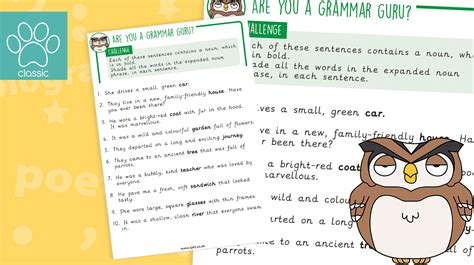 classic
ARE YOU A GRAMMAR GURU?
CHALLENGE
Each of these sentences contains a noun, which
is in bold.
Shade all the words in the expanded noun
phrase, in each sentence.
1. She drives a small, green car.
2. They live in a new, family-friendly house. Have
you ever been there?
3. He wore a bright-red coat with fur in the hood.
It was marvellous.
4. It was a wild and colourful garden full of flowers.
5. They departed on a long and exciting journey.
6. They came to an ancient tree that was full of
parrots.
7. He was a bubbly, kind teacher who was loved by
everyone.
8. He gave me a fresh, soft sandwich that looked
tasty.
9. She wore large, square glasses with thin frames.
10. It was a shallow, clean river that everyone swam
in.
ARE YOU A GRAMMAR GURU?
CHALLENGE
Each of these sentences contains a noun, which
in bold.
ade all the words in the expanded noun
ase, in each sentence.
ves a small, green car.
e in a new, family-friendly house
een there?
a bright-red coat
vellous.
wild and colou
ted on a
to an
poe